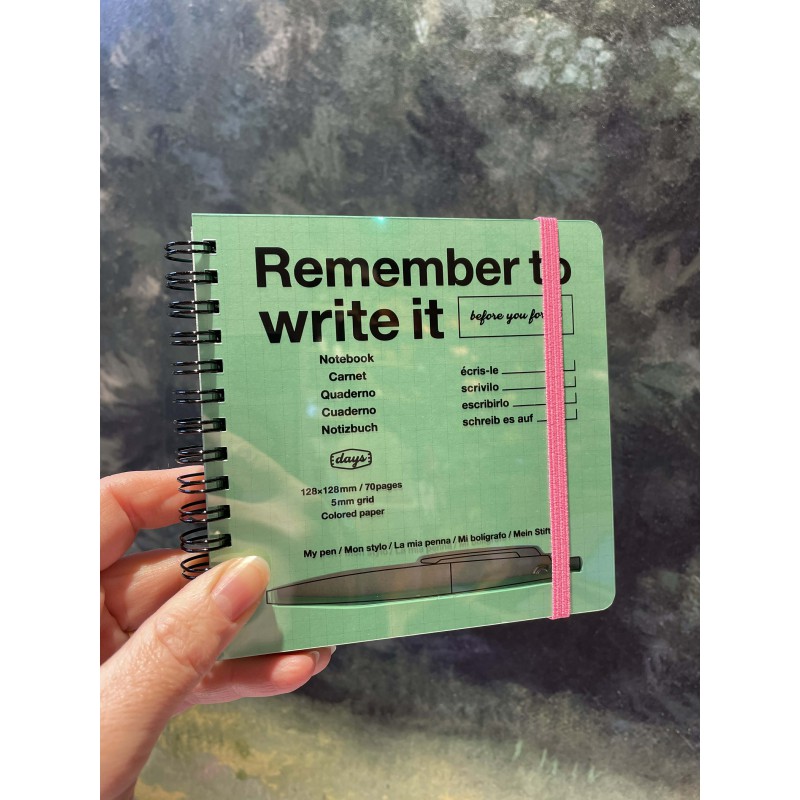 Remember to
write it
before you for
Notebook
Carnet
Quaderno
Cuaderno
Notizbuch
écris-le
scrivilo
escribirlo
schreib es auf
days
128×128mm / 70pages
5mm grid
Colored paper
My pen / Mon stylo / La mia penna / Mi bolígrafo / Mein Stift